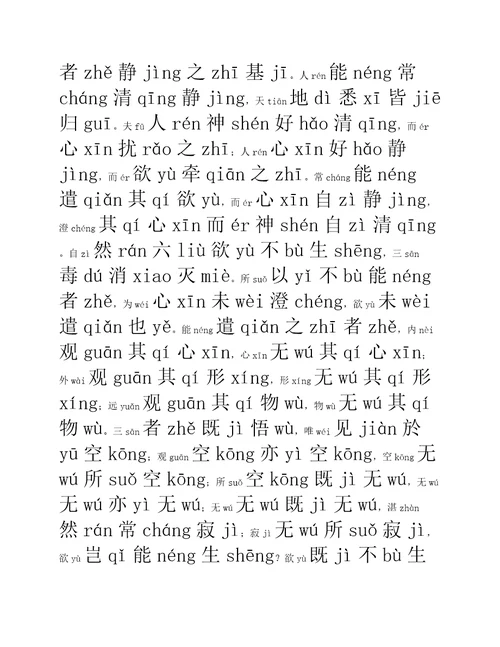 者 zhě 静 jìng 之 zhī 基 jī。人 rén 能 néng 常
cháng 清 qīng 静 jìng，天 tiān 地 dì 悉 xī 皆 jiē
归 guī。夫 fū 人 rén 神 shén 好 hǎo 清 qīng，而 ér
心 xīn 扰 rǎo 之 zhī；人 rén 心 xīn 好 hǎo 静
jìng，而 ér 欲 yù 牵 qiān 之 zhī。常 cháng 能 néng
遣 qiǎn 其 qí 欲 yù，而 ér 心 xīn 自 zì 静 jìng，
澄 chéng 其 qí 心 xīn 而 ér 神 shén 自 zì 清 qīng
。自 zì 然 rán 六 liù 欲 yù 不 bù 生 shēng，三 sān
毒 dú 消 xiao 灭 miè。所 suǒ 以 yǐ 不 bù 能 néng
者 zhě，为 wéi 心 xīn 未 wèi 澄 chéng，欲 yù 未 wèi
遣 qiǎn 也 yě。能 néng 遣 qiǎn 之 zhī 者 zhě，内 nèi
观 guān 其 qí 心 xīn，心 xīn 无 wú 其 qí 心 xīn；
外 wài 观 guān 其 qí 形 xíng，形 xíng 无 wú 其 qí 形
xíng；远 yuǎn 观 guān 其 qí 物 wù，物 wù 无 wú 其 qí
物 wù。三 sān 者 zhě 既 jì 悟 wù，唯 wéi 见 jiàn 於
yū 空 kōng；观 guān 空 kōng 亦 yì 空 kōng，空 kōng 无
wú 所 suǒ 空 kōng；所 suǒ 空 kōng 既 jì 无 wú，无 wú
无 wú 亦 yì 无 wú；无 wú 无 wú 既 jì 无 wú，湛 zhàn
然 rán 常 cháng 寂 jì；寂 jì 无 wú 所 suǒ 寂 jì，
欲 yù 岂 qǐ 能 néng 生 shēng？欲 yù 既 jì 不 bù 生